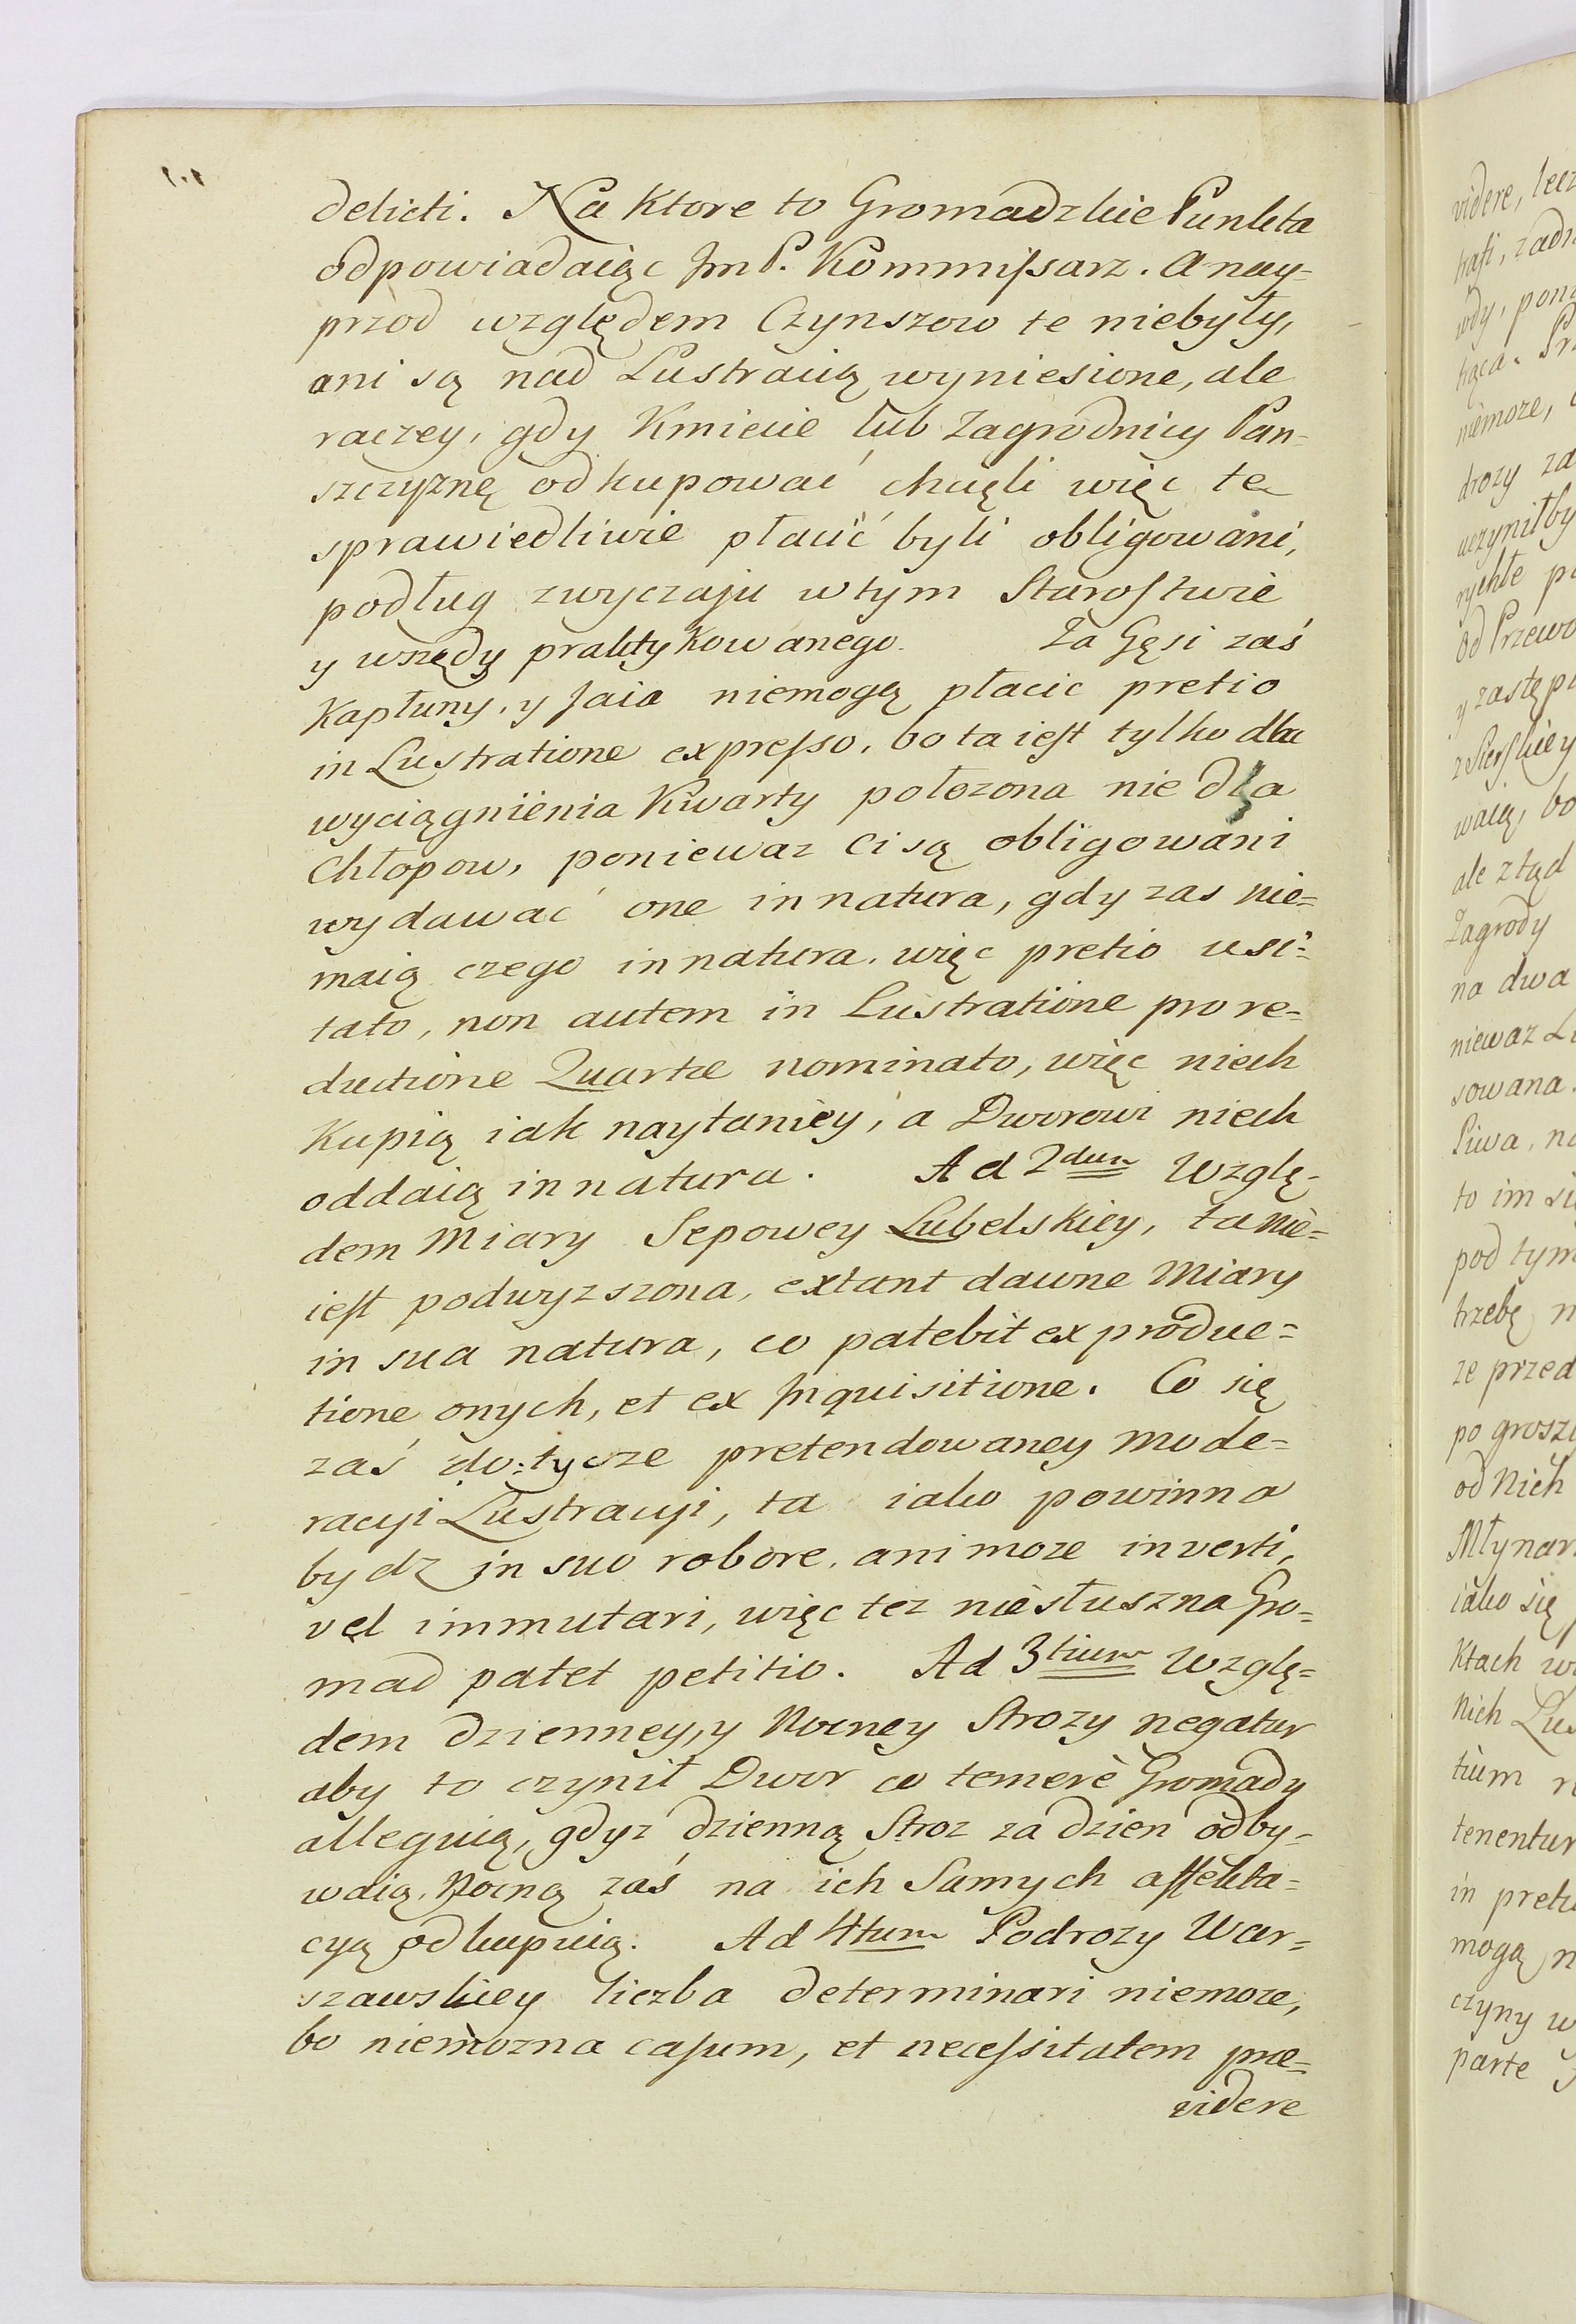 delicti. Na ktore to Gromadzkie Punkta
odpowiadaiąc Jm P. Kommiſsarz. A nay-
przod względem Czynszow te niebyły,
ani są nad Lustracią wyniesione, ale
raczey, gdy Kmiecie lub Zagrodnicy Pan-
szczyznę odkupować chcieli więc te
sprawiedliwie płacić byli obligowani,
podług zwyczaju w tym Staroſtwie
y wszędy praktykowanego. Za Gęsi zaś
Kapłuny, y Jaia niemogą płacic pretio
in Lustratione expreſso, bo ta ieſt tylko dla
wyciągnienia Kwarty położona nie dla
Chłopow, poniewaz ci są obligowani
wydawać one in natura, gdy zas nie=
maią czego in natura, więc pretio usi=
tato, non autem in Lustratione pro re=
ductione Quartæ nominato, więc niech
kupią iak naytaniey, a Dworowi niech
oddaią in natura. Ad 2dum Wzglę-
dem Miary Sepowey Lubelskiey, ta nie=
ieſt podwyzszona, extant dawne Miary
in sua natura, co patebit ex produc=
tione onych, et ex Inquisitione. Co się
zaś do:tycze pretendowaney mode=
racyi Lustracyi, ta iako powinna
bydz in suo robore, ani moze inverti,
vel immutari, więc tez niesłuszna Gro=
mad patet petitio. Ad 3tium Wzglę=
dem dzienney, y Nocney Strozy negatur
aby to czynił Dwor co temerè Gromady
alleguią, gdyz dzienną Stroz za dzien odby-
waią, Nocną zaś na ich Samych affekta=
cyą odkupuią. Ad 4tum Podrozy War=
szawskiey liczba determinari niemoze,
bo niemozna caſum, et neceſsitatem præ=
videre
videre, lecz
ale ztąd
Zagrody
na dwa
sowana.
pod tym
ze przed
od Nich
tenentur
parte